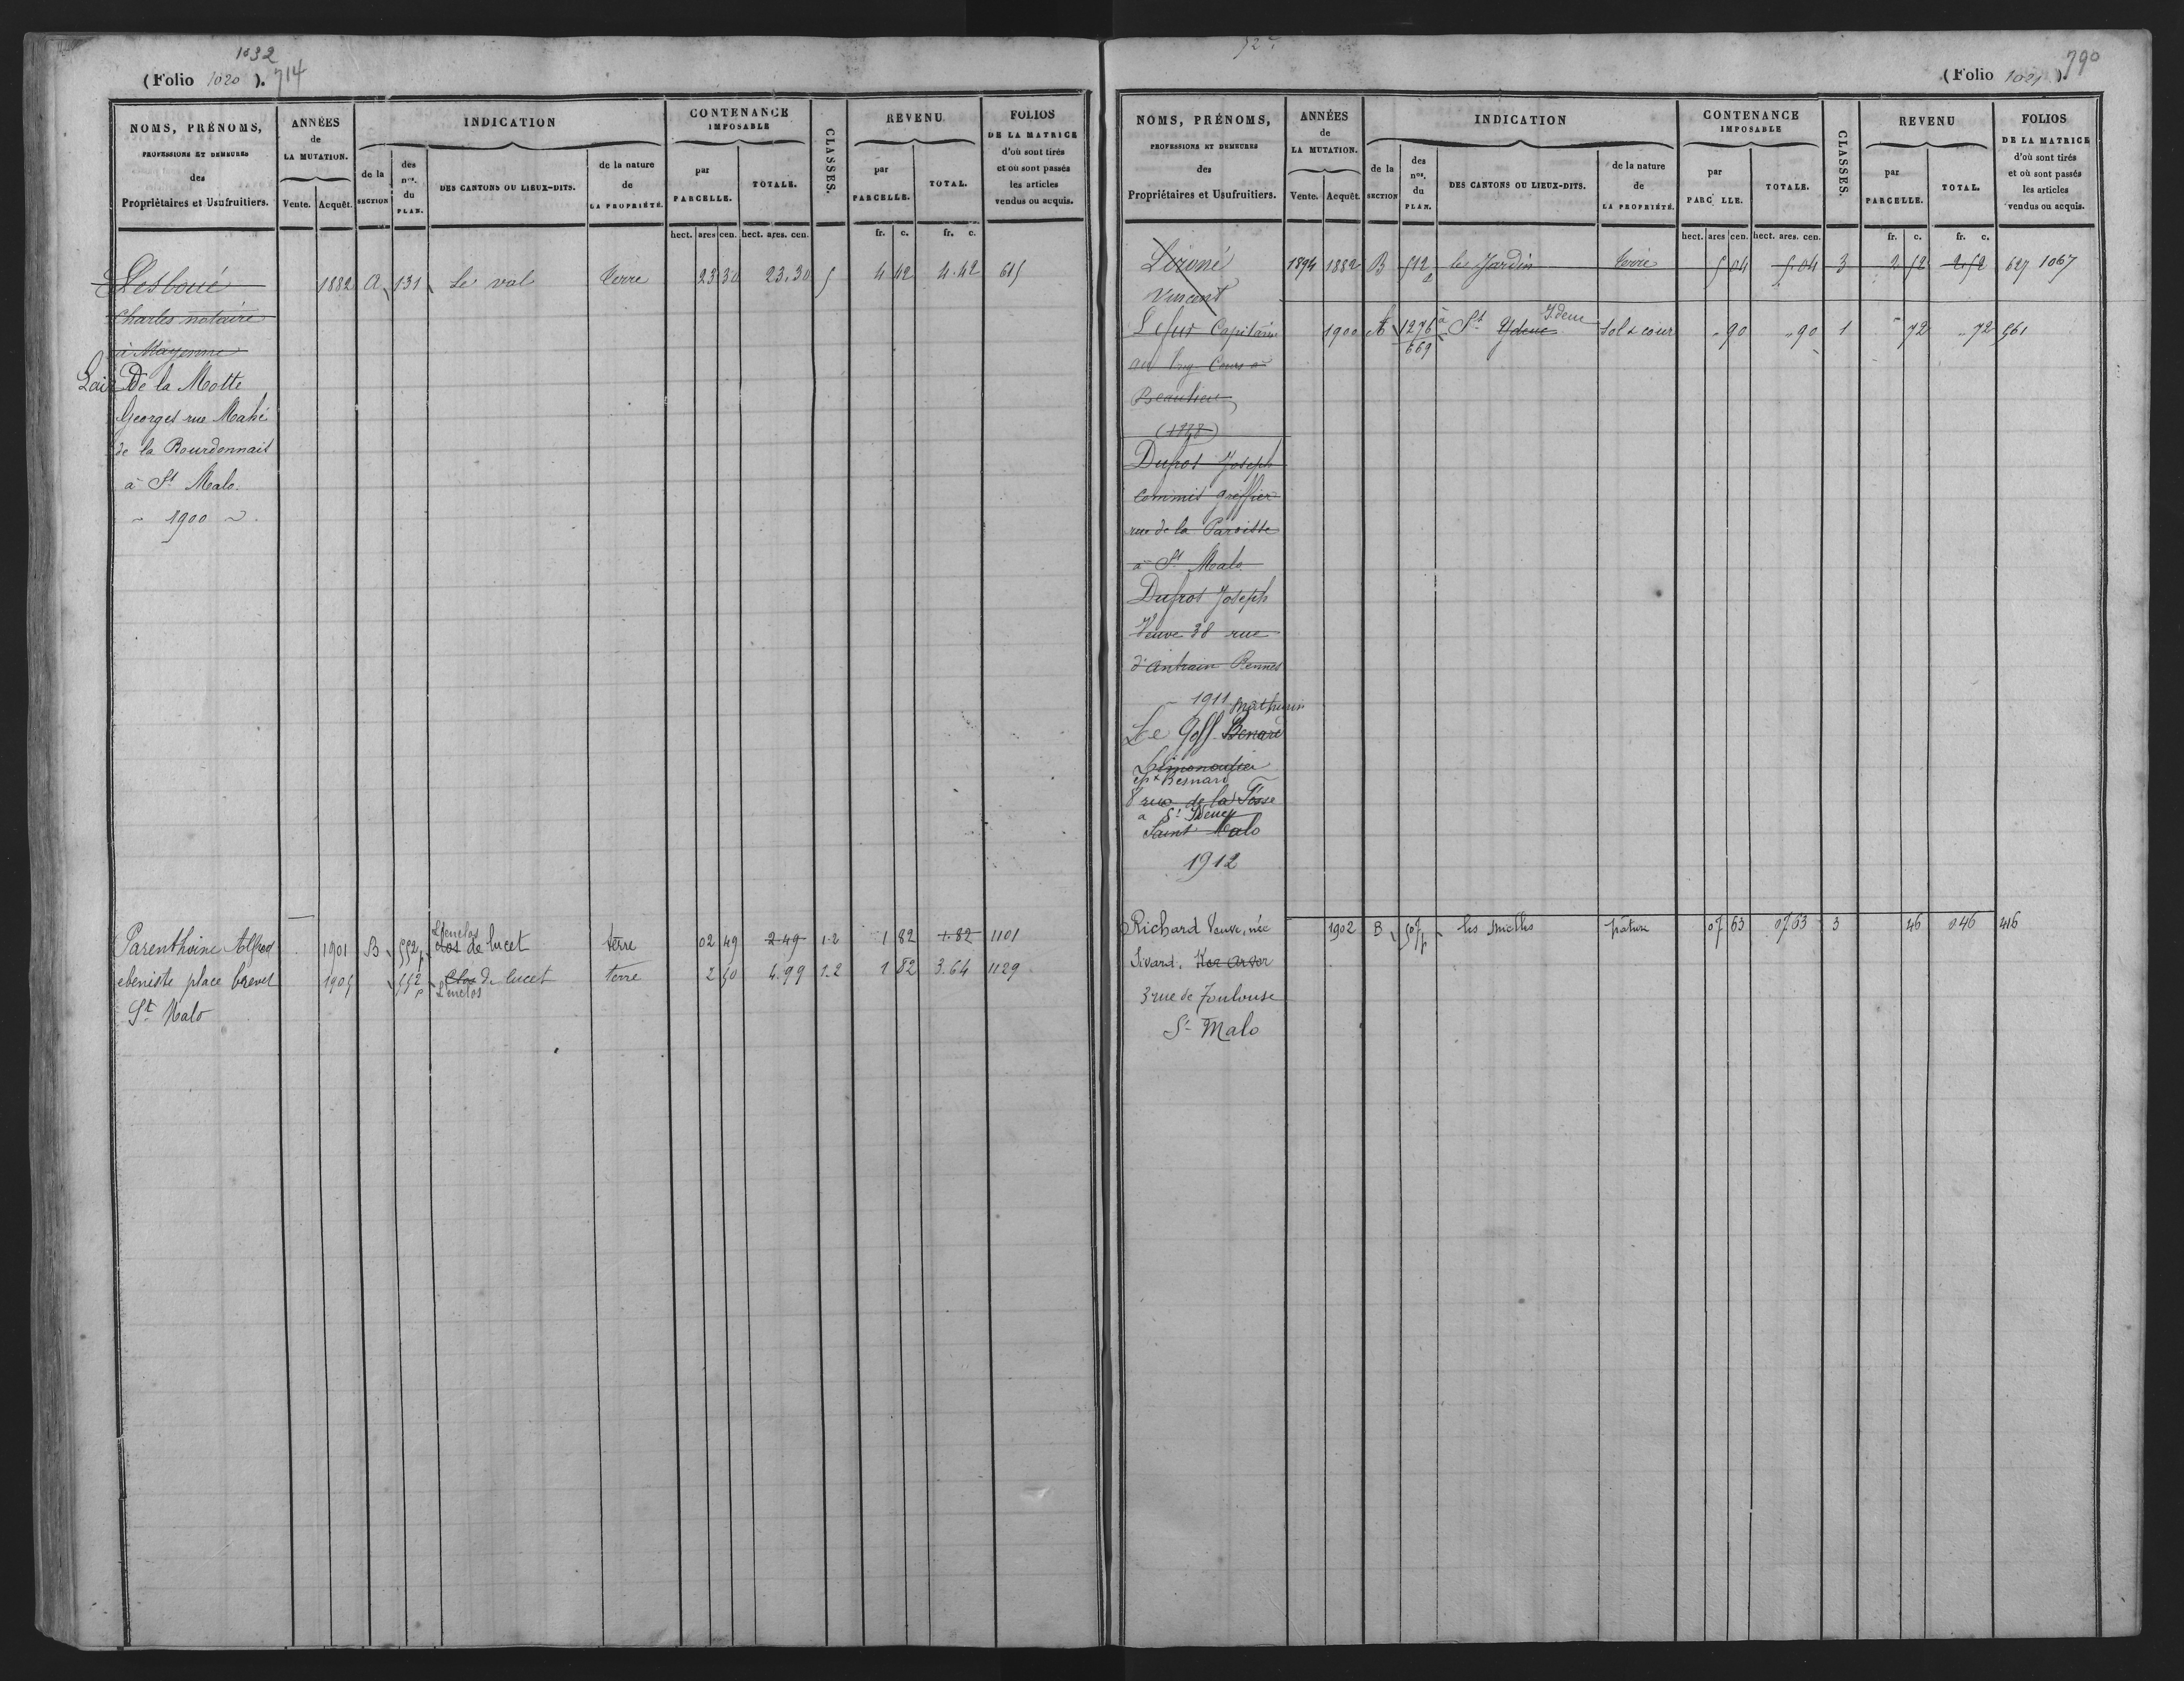 1032
(Folio 1020 ). 714
NOMS, PRÉNOMS,
PROFESSIONS ET DEMEURES
des
Propriétaires et Usufruitiers.
ANNÉES
de
LA MUTATION.
Vente. Acquêt.
INDICATION
de la
SECTION
des
nos.
du
PLAN.
DES CANTONS OU LIEUX-DITS.
de la nature
de
LA PROPRIÉTÉ.
CONTENANCE
IMPOSABLE
par
PARCELLE.
TOTALE.
CLASSES.
REVENU
par
PARCELLE.
TOTAL.
FOLIOS
DE LA MATRICE
d'où sont tirés
et où sont passés
les articles
vendus ou acquis.
hect. ares cen. hect. ares. cen. fr. c. fr. c.
Lesboué 1882 A 131 Le val terre 23 30 23.30 5 4 42 4.42 615
Charles notaire
à Mayenne
Lair De la Motte
Georges rue Mahé
de la Bourdonnais
à St Malo.
1900
L'enclos
Parenthoine Alfred 1901 B 552p clos de lucet terre 02 49 2 49 1-2 1 82 1.82 1101
ebeniste place brevet 1905 552p Clos de lucet terre 2 50 4.99 1.2 1 82 3.64 1129
L'enclos
St Malo
(Folio 1021 ). 790
NOMS, PRÉNOMS,
PROFESSIONS ET DEMEURES
des
Propriétaires et Usufruitiers.
ANNÉES
de
LA MUTATION.
Vente. Acquêt.
INDICATION
de la
SECTION
des
nos.
du
PLAN.
DES CANTONS OU LIEUX-DITS.
de la nature
de
LA PROPRIÉTÉ.
CONTENANCE
IMPOSABLE
par
PARC LLE.
TOTALE.
CLASSES.
REVENU
par
PARCELLE.
TOTAL.
FOLIOS
DE LA MATRICE
d'où sont tirés
et où sont passés
les articles
vendus ou acquis.
hect. ares cen. hect. ares. cen. fr. c. fr. c.
1894 1882 B 512 le Jardin terre 5 04 5.04 3 2 52 2.52 627 1067
Vincent
Ideuc
Lefur Capitaine 1900 A 1276 à St Ydeuc Sol & cour 90 90 1 72 72 561
669
au long-Cours à
Beaulieu
Dufrot Joseph
commis greffier
rue de la Paroisse
à St Malo
Dufrot Joseph
Veuve 38 rue
d'Antrain Rennes
1911
Mathurin
Le Goff Benard
epx Besnard
8 rue de la Fosse
à St Ideuc
Saint Malo
1912
Richard Veuve, née 1902 B 507p les Mielles pâture 07 63 07 63 3 46 0 46 416
Sivard, Ker Arvor
3 rue de Toulouse
St Malo